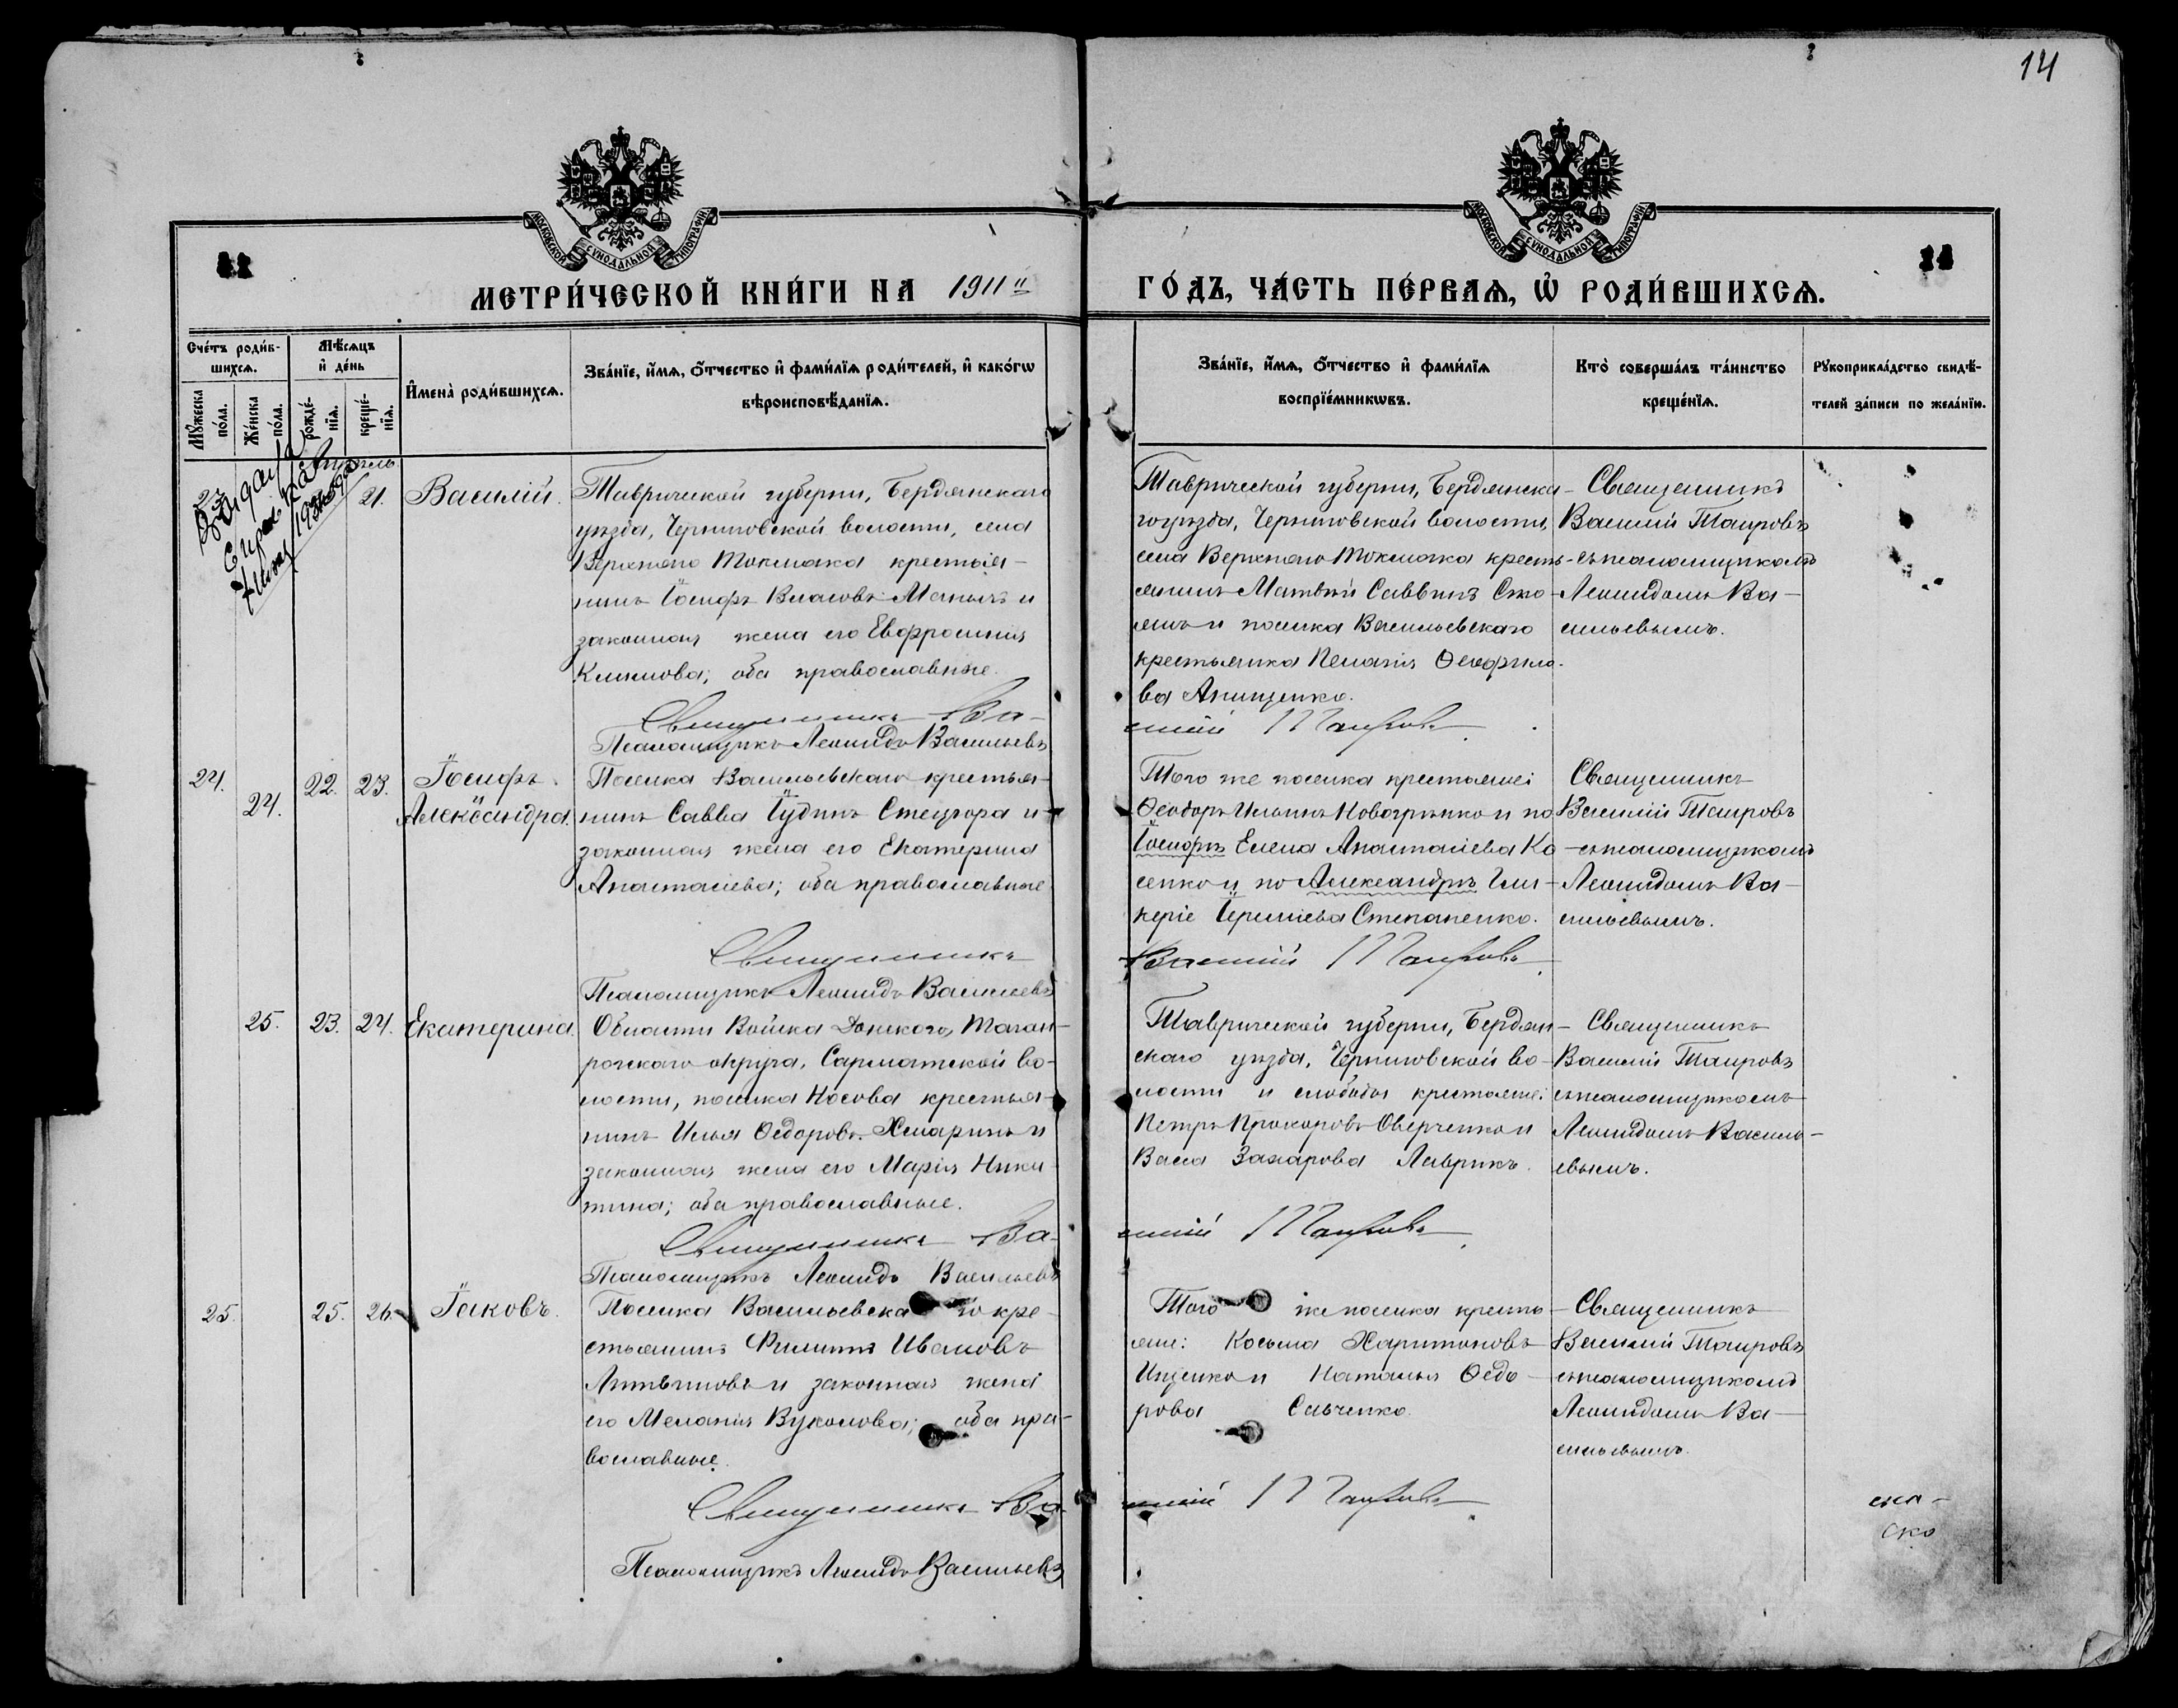 14
МОСКОВСКОЙ СѴНОДАЛЬНОЙ ТИПОГРАФІИ
МОСКОВСКОЙ СѴНОДАЛЬНОЙ ТИПОГРАФІИ
МЕТРИ́ЧЕСКОЙ КНИ́ГИ НА 1911 й
ГО́ДЪ, ЧА́СТЬ ПЕ́РВАѦ, Ѡ҆ РОДИ́ВШИХСѦ.
Сче́тъ роди́в-
шихсѧ.
Мꙋ́жеска по́ла.
Же́нска по́ла.
Мѣ́сѧцъ
и҆ де́нь
рожде́-
нїѧ.
креще́-
нїѧ.
И҆мена̀ роди́вшихсѧ.
Зва́нїе, и҆́мѧ, ѻ҆́тчество и҆ фами́лїѧ роди́телей, и҆ како́гѡ
вѣроисповѣ́данїѧ.
Зва́нїе, и҆́мѧ, ѻ҆́тчество и҆ фами́лїѧ
воспрїе́мникѡвъ.
Кто̀ соверша́лъ та́инство
креще́нїѧ.
Рꙋкоприкла́дство свидѣ́-
телей за́писи по жела́нїю.
Апрель
23
21.
Василій.
Таврической губерніи, Бердянскаго
уѣзда, Черниговской волости, села
Верхняго Токмака крестья-
нинъ Іосифъ Власовъ и
законная жена его Евфросинія
Климова; оба православные.
Священникъ Ва-
Псаломщикъ Леонидъ Васильевъ
Таврической губерніи, Бердянска-
го уѣзда, Черниговской волости,
села Верхняго Токмака кресть-
янинъ Матвѣй Саввинъ Сто-
янъ и поселка Васильевскаго
крестьянка Пелагія Ѳеофило-
ва Анищенко.
силій Таировъ
Священникъ
Василій Таировъ
съ псаломщикомъ
Леонидомъ Ва-
сильевымъ.
24.
24.
22. 23.
Іосифъ.
Александра.
Поселка Васильевскаго крестья-
нинъ Савва Іудинъ Стецюра и
законная жена его Екатерина
Анастасіева; оба православные
Священникъ
Псаломщикъ Леонидъ Васильевъ
Того же поселка крестьяне:
Ѳеодоръ Ильинъ и по
Іосифѣ Елена Анастасіева Ко-
сенко и по Александрѣ Гли-
керіе Степаненко.
Василій Таировъ
Священникъ
Василій Таировъ
съ псаломщикомъ
Леонидомъ Ва-
сильевымъ.
25. 23. 24. Екатерина.
Области Войска Донского, Таган-
рогскаго округа, Сарматской во-
лости, поселка Носова крестья-
нинъ Илья Ѳедоровъ и
законная жена его Марія Ники-
тина; оба православные.
Священникъ Ва-
Псаломщикъ Леонидъ Васильевъ
Таврической губерніи, Бердян-
скаго уѣзда, Черниговской во-
лости и слободы крестьяне:
Петръ Прохоровъ Оверченко и
Васса Захарова Лаврикъ.
силій Таировъ
Священникъ
Василій Таировъ
съ псаломщикомъ
Леонидомъ Василь-
евымъ.
25. 25. 26. Іаковъ.
Поселка Васильевскаго кре-
стьянинъ Филиппъ Ивановъ
Литвиновъ и законная жена
его Меланія Вуколова; оба пра-
вославные.
Священникъ Ва-
Псаломщикъ Леонидъ Васильевъ
Того же поселка кресть-
яне: Косьма Харитоновъ
Ищенко и Наталья Ѳедо-
рова Савченко.
силій Таировъ
Священникъ
Василій Таировъ
съ псаломщикомъ
Леонидомъ Ва-
сильевымъ.